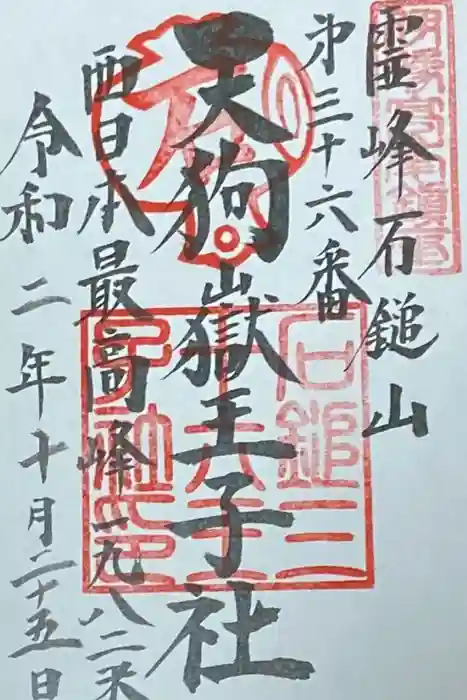 霊峰石鎚山
第三十六番
天狗嶽王子社
西日本最高峰一九八二米
令和二年十月二十五日
石鎚三
十六王
子社印